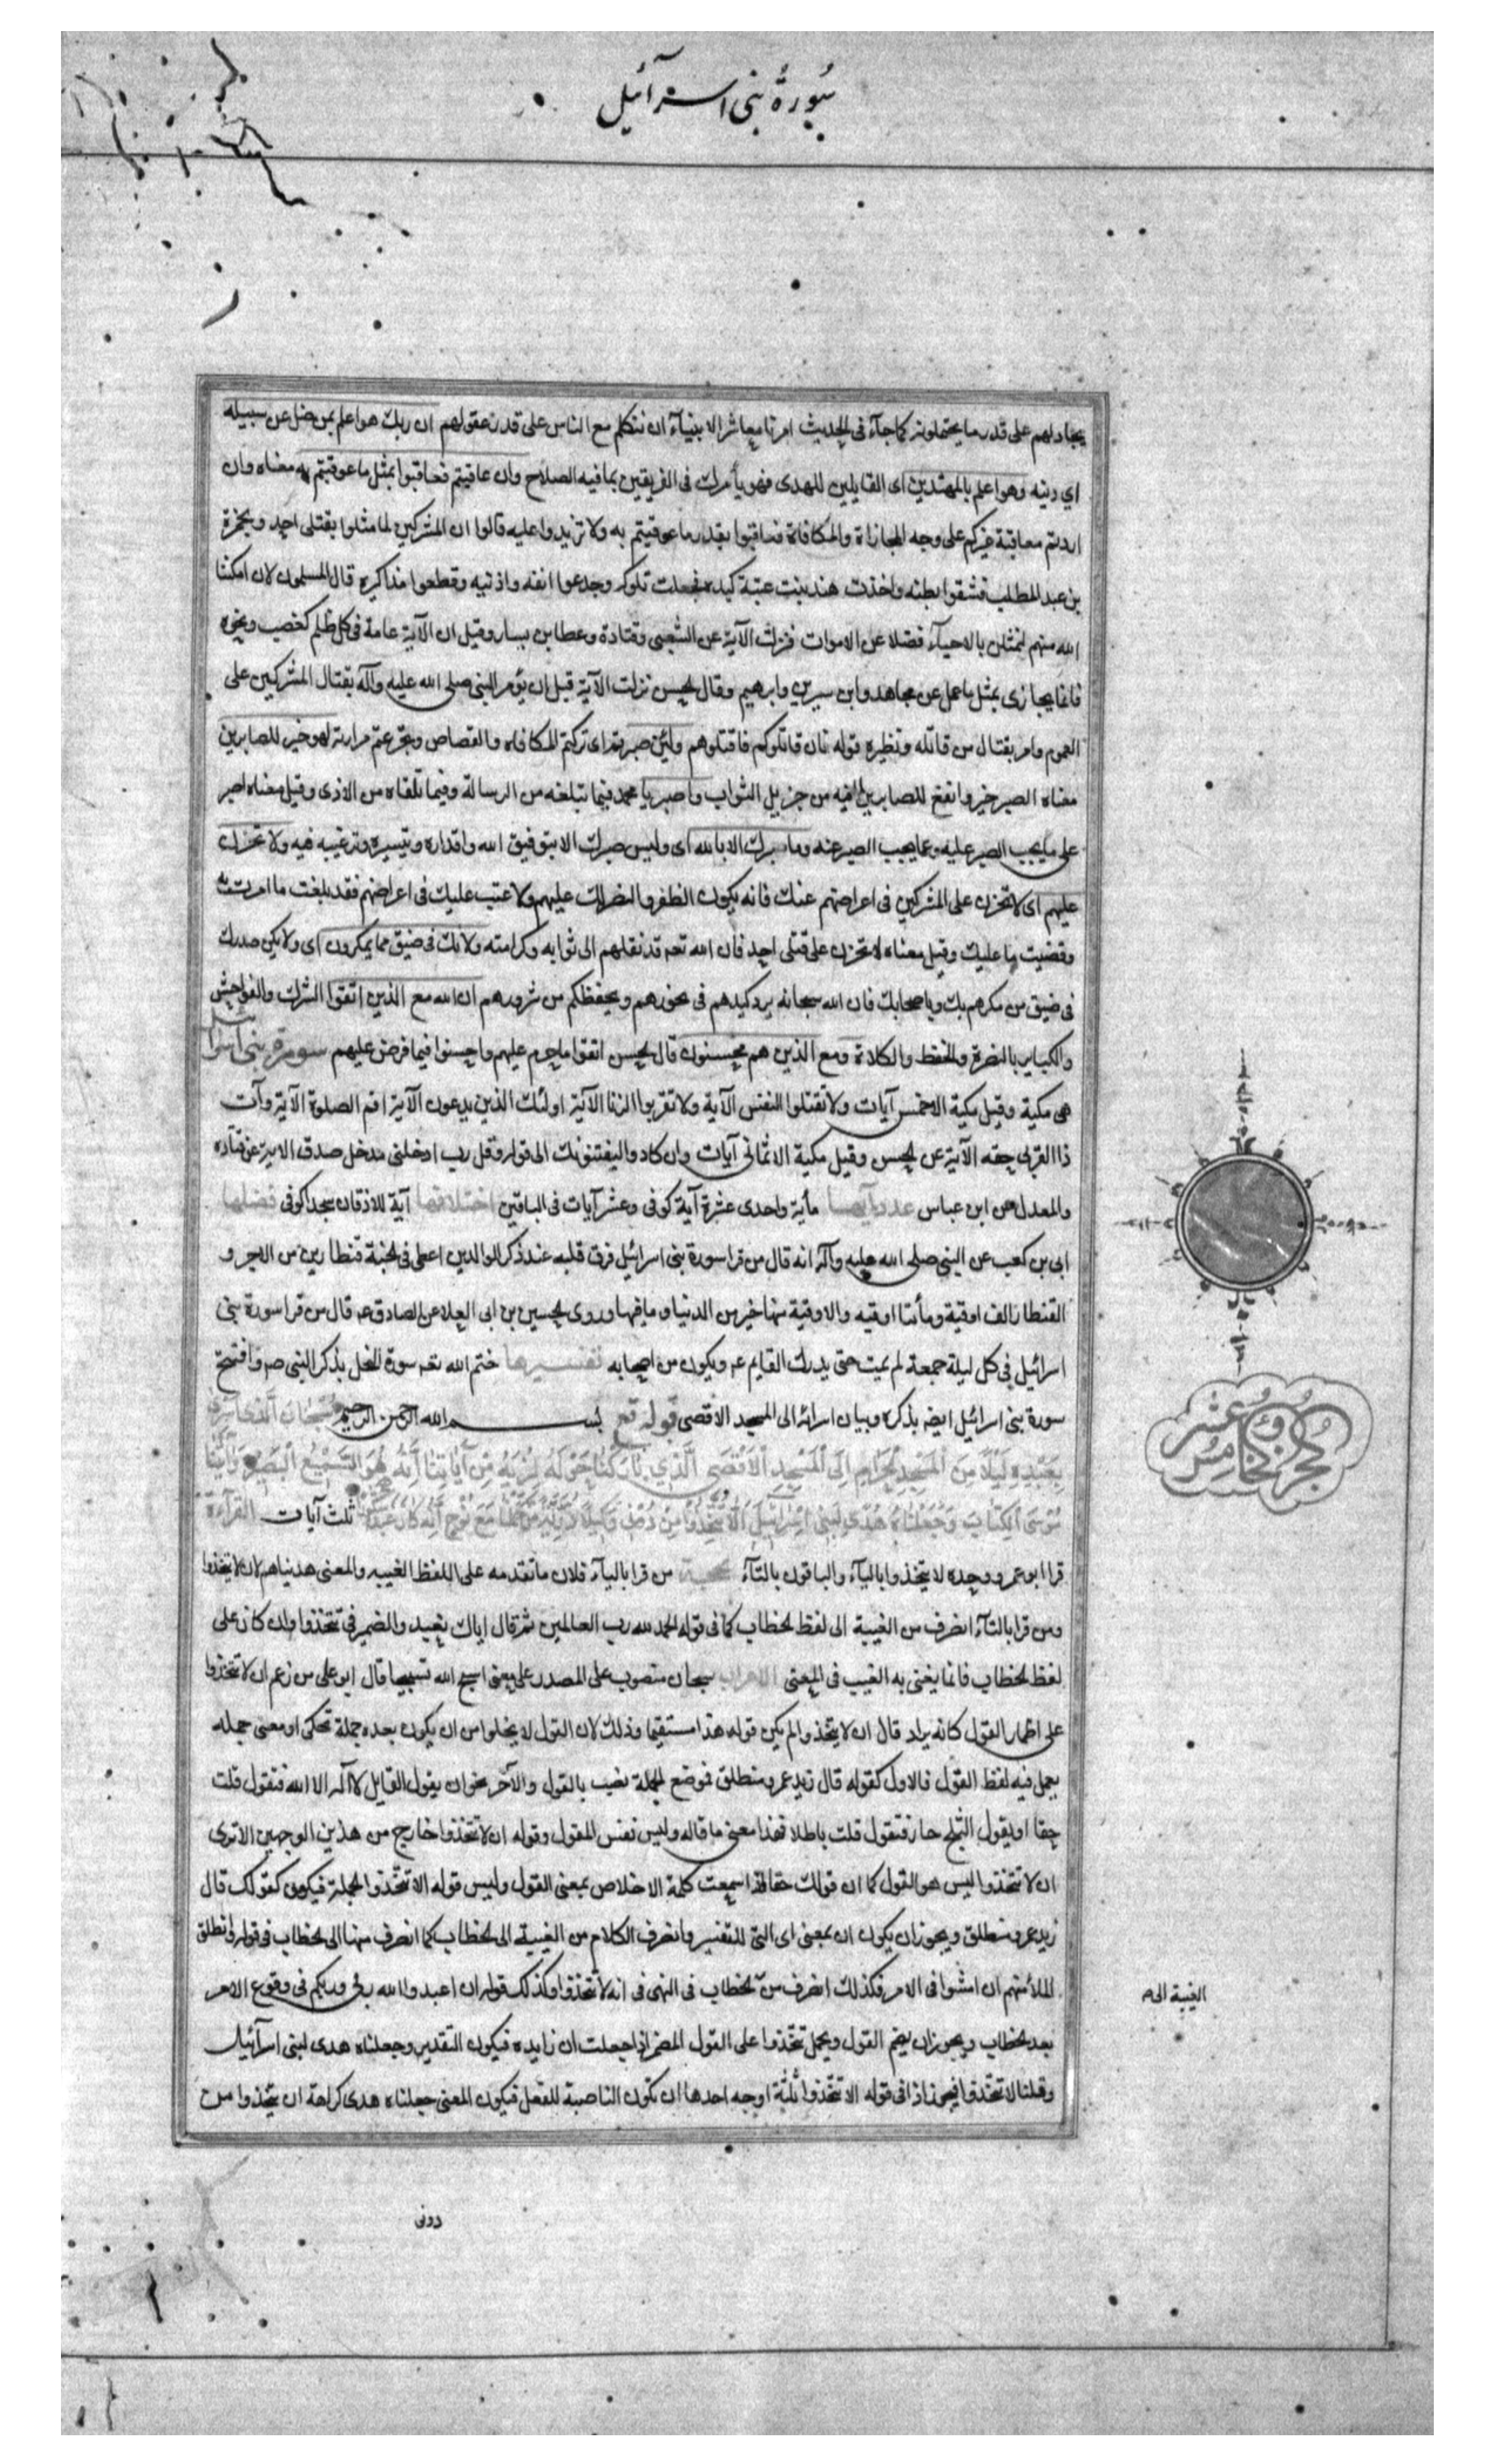 سورة بنی اسرآئیل
يجادلهم على قدر ما يحتملونه كما جآء فى الحديث امرنا معاشر الانبيآء ان نتكلم مع الناس على قدر عقولهم ان ربك هو اعلم بمن ضل عن سبيله
اي دينه وهو اعلم بالمهتدين اى القابلين للهدى فهو يأمرك فى الفريقين بما فيه الصلاح وان عاقبتم فعاقبوا بمثل ما عوقبتم به معناه وان
اردتم معاقبة غيركم على وجه المجازاة والمكافاة فعاقبوا بقدر ما عوقبتم به ولا تزيدوا عليه قالوا ان المشركين لما مثلوا بقتلى احد وبحمزة
بن عبد المطلب فشقوا بطنه واخذت هند بنت عتبة كبده فجعلت تلوكه وجدعوا انفه واذنيه وقطعوا مذاكيره قال المسلمون لان امكننا
الله منهم لنمثلن بالاحيآء فضلا عن الاموات فنزلت الآية عن الشعبى وقتادة وعطا بن يسار وقيل ان الآية عامة فى كل ظلم كغصب ونحوه
فانما يجازى بمثل ما عمل عن مجاهد وابن سيرين وابرهيم وقال الحسن نزلت الآية قبل ان يؤمر النبى صلى الله عليه وآله بقتال المشركين على
العموم وامر بقتال من قاتله ونظيره قوله فان قاتلوكم فاقتلوهم ولئن صبرتم اى تركتم المكافاة والقصاص وتجرعتم مرارته لهو خير للصابرين
معناه الصبر خير وانفع للصابرين لما فيه من جزيل الثواب واصبر يا محمد فيما تبلغه من الرسالة وفيما تلقاه من الاذى وقيل معناه اصبر
على ما يجب الصبر عليه وعما يجب الصبر عنه وما صبرك الا بالله اى وليس صبرك الا بتوفيق الله واقداره وتيسيره وترغيبه فيه ولا تحزن
عليهم اى لا تحزن على المشركين فى اعراضهم عنك فانه يكون الظفر والنصر لك عليهم ولا عتب عليك فى اعراضهم فقد بلغت ما امرت به
وقضيت ما عليك وقيل معناه لا تحزن على قتلى احد فان الله تعه قد نقلهم الى ثوابه وكرامته ولا تك فى ضيق مما يمكرون اى ولا يكن صدرك
فى ضيق من مكرهم بك وباصحابك فان الله سبحانه يرد كيدهم فى نحورهم ويحفظكم من شرورهم ان الله مع الذين اتقوا الشرك والفواحش
والكباير بالنصرة والحفظ والكلاة ومع الذين هم محسنون قال الحسن اتقوا ما حرم عليهم واحسنوا فيما فرض عليهم سورة بنى اسرائيل
هى مكية وقيل مكية الا خمس آيات ولا تقتلوا النفس الآية ولا تقربوا الزنا الآية اولئك الذين يدعون الآية اقم الصلوة الآية وآت
ذا القربى حقه الآية عن الحسن وقيل مكية الا ثمانى آيات وان كادوا ليفتنونك الى قوله وقل رب ادخلنى مدخل صدق الاية عن قتاده
والمعدل عن ابن عباس عدد آيها مأية واحدى عشرة آية كوفى وعشر آيات فى الباقين اختلافها آية للاذقان سجدا كوفى فضلها
ابى بن كعب عن النبى صلى الله عليه وآله انه قال من قرا سورة بنى اسرائيل فرق قلبه عند ذكر الوالدين اعطى فى الجنة قنطارين من الاجر و
القنطار الف اوقية ومأتا اوقيه والاوقية منها خير من الدنيا وما فيها وروى الحسين بن ابى العلا عن الصادق عه قال من قرا سورة بنى
اسرائيل فى كل ليلة جمعة لم يمت حتى يدرك القايم عه ويكون من اصحابه تفسيرها ختم الله تعه سورة النحل بذكر النبى صه وافتتح
سورة بنى اسرائيل ايضا بذكره وبيان اسرائه الى المسجد الاقصى قوله تع بسم الله الرحمن الرحيم سبحان الذى اسرى
بعبده ليلا من المسجد الحرام الى المسجد الاقصى الذى باركنا حوله لنريه من آياتنا انه هو السميع البصير وآتينا
موسى الكتاب وجعلناه هدى لبنى اسرائيل الا تتخذوا من دونى وكيلا ذرية من حملنا مع نوح انه كان عبدا شكورا ثلث آيات القرآءة
قرا ابو عمرو وحده لا يتخذوا باليآء والباقون بالتآء الحجة من قرا باليآء فلان ما تقدمه على اللفظ الغيبه والمعنى هديناهم لان لا يتخذوا
ومن قرا بالتآء انصرف من الغيبة الى لفظ الخطاب كما فى قوله الحمد لله رب العالمين ثم قال اياك نعبد والضمير فى تتخذوا وان كان على
لفظ الخطاب فانما يعنى به الغيب فى المعنى الاعراب سبحان منصوب على المصدر على معنى اسبح الله تسبيحا قال ابو على من زعم ان لا تتخذوا
على اظهار القول كانه يراد قال ان لا يتخذوا لم يكن قوله هذا مستقيما وذلك لان القول لا يخلو من ان يكون بعده جملة تحكى او معنى جمله
يعمل فيه لفظ القول فالاول كقوله قال زيد عمرو منطلق فموضع الجملة نصب بالقول والآخر نحو ان يقول القايل لا اله الا الله فتقول قلت
حقا او يقول الثلج حار فتقول قلت باطلا فهذا معنى ما قاله وليس نفس المقول وقوله ان لا تتخذوا خارج من هذين الوجهين الا ترى
ان لا تتخذوا ليس هو القول كما ان قولك حقا اذا سمعت كلمة الاخلاص بمعنى القول وليس قوله الا تتخذوا الجملة فيكون كقولك قال
زيد عمرو منطلق ويجوز ان يكون ان بمعنى اى التى للتفسير وانصرف الكلام من الغيبة الى الخطاب كما انصرف منها الى الخطاب فى قوله وانطلق
الملأ منهم ان امشوا فى الامر فكذلك انصرف من الخطاب فى النهى فى انه لا تتخذوا وكذلك قوله ان اعبدوا الله ربى وربكم فى وقوع الامر
الغيبة الى
بعد الخطاب ويجوز ان يضم القول ويحمل تتخذوا على القول المضمر اذا جعلت ان زايده فيكون التقدير وجعلناه هدى لبنى اسرآئيل
وقلنا لا تتخذوا فيجوز اذا فى قوله الا تتخذوا ثلثة اوجه احدها ان تكون الناصبة للفعل فيكون المعنى جعلناه هدى كراهة ان يتخذوا من
دونى
الجزؤ الخامس عشر